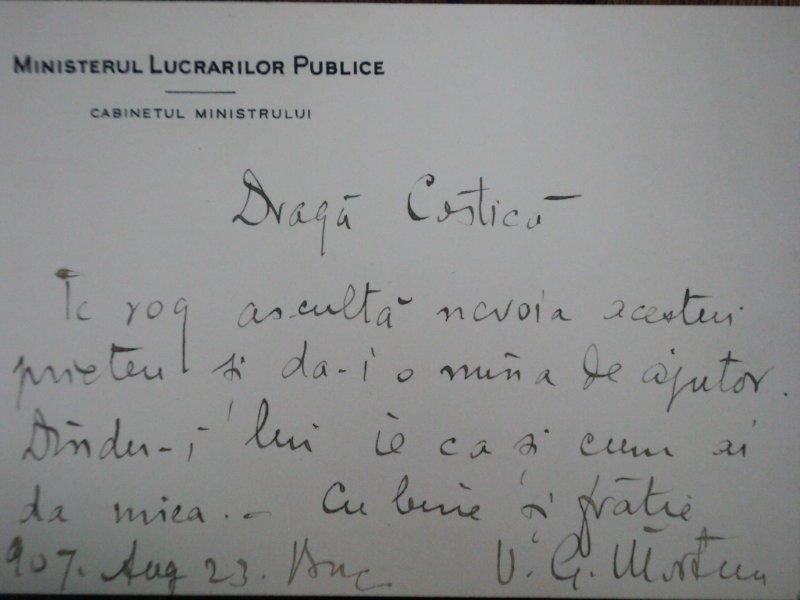 MINISTERUL LUCRARILOR PUBLICE
CABINETUL MINISTRULUI
Dragă Costică
Te rog ascultă nevoia acestui
prieten și da-i o mîna de ajutor.
Dîndu-i lui ie ca și cum ai
da miea. – Cu bine și frăție
907. Aug 23. Buc V. G. Morțun